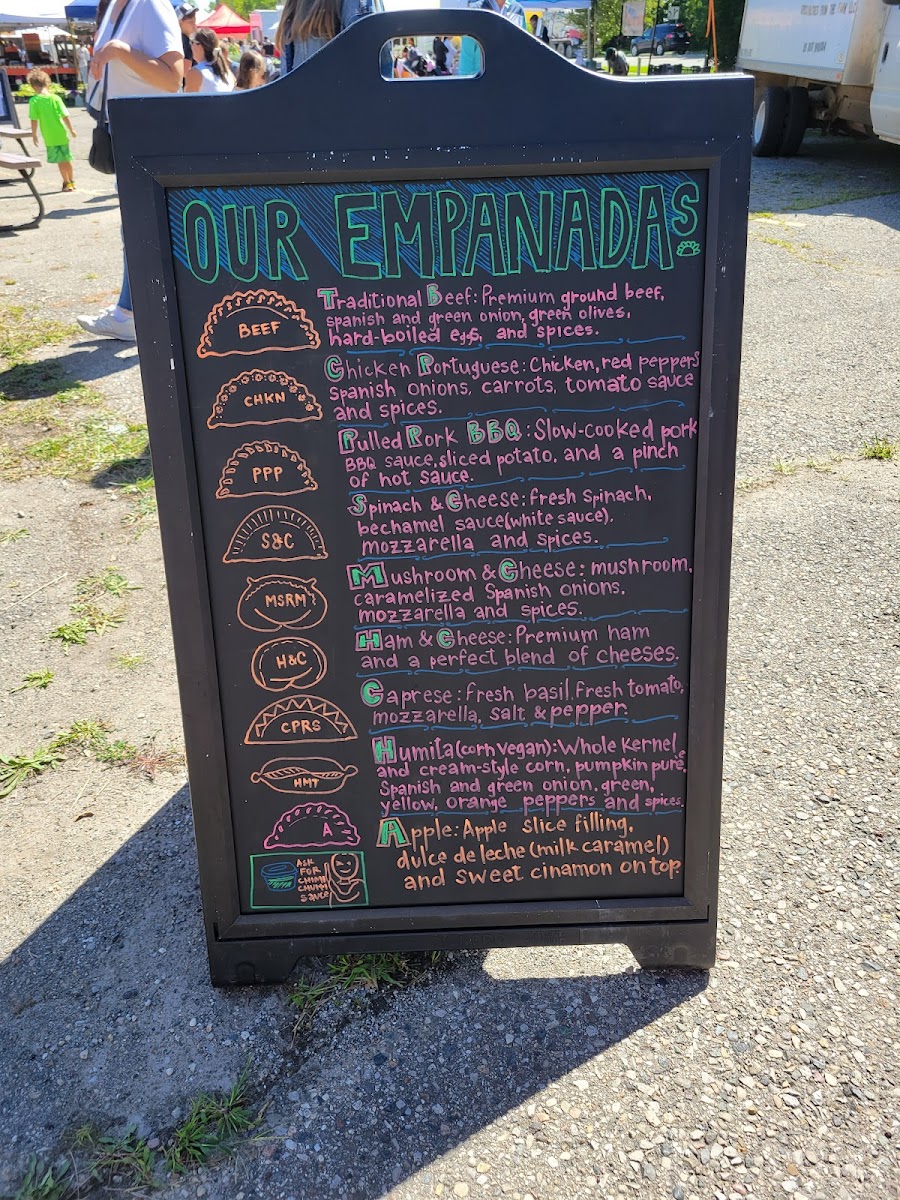 OUR EMPANADAS
BEEF
Traditional Beef: Premium ground beef,
spanish and green onion, green olives,
hard-boiled eggs, and spices.
CHKN
Chicken Portuguese: Chicken, red peppers
Spanish onions, carrots, tomato sauce
and spices.
PPP
Pulled Pork BBQ: Slow-cooked pork
BBQ sauce, sliced potato, and a pinch
of hot sauce.
S&C
Spinach & Cheese: fresh spinach,
bechamel sauce (white sauce),
mozzarella and spices.
MSRM
Mushroom & Cheese: mushroom,
caramelized Spanish onions,
mozzarella and spices.
H&C
Ham & Cheese: Premium ham
and a perfect blend of cheeses.
CPRS
Caprese: fresh basil, fresh tomato,
mozzarella, salt & pepper.
HMT
Humita (corn vegan): Whole kernel
and cream-style corn, pumpkin puré,
Spanish and green onion, green,
yellow, orange peppers and spices.
A
Apple: Apple slice filling,
dulce de leche (milk caramel)
and sweet cinamon on top
ASK
FOR
CHIMI
CHURRI
SAUCE